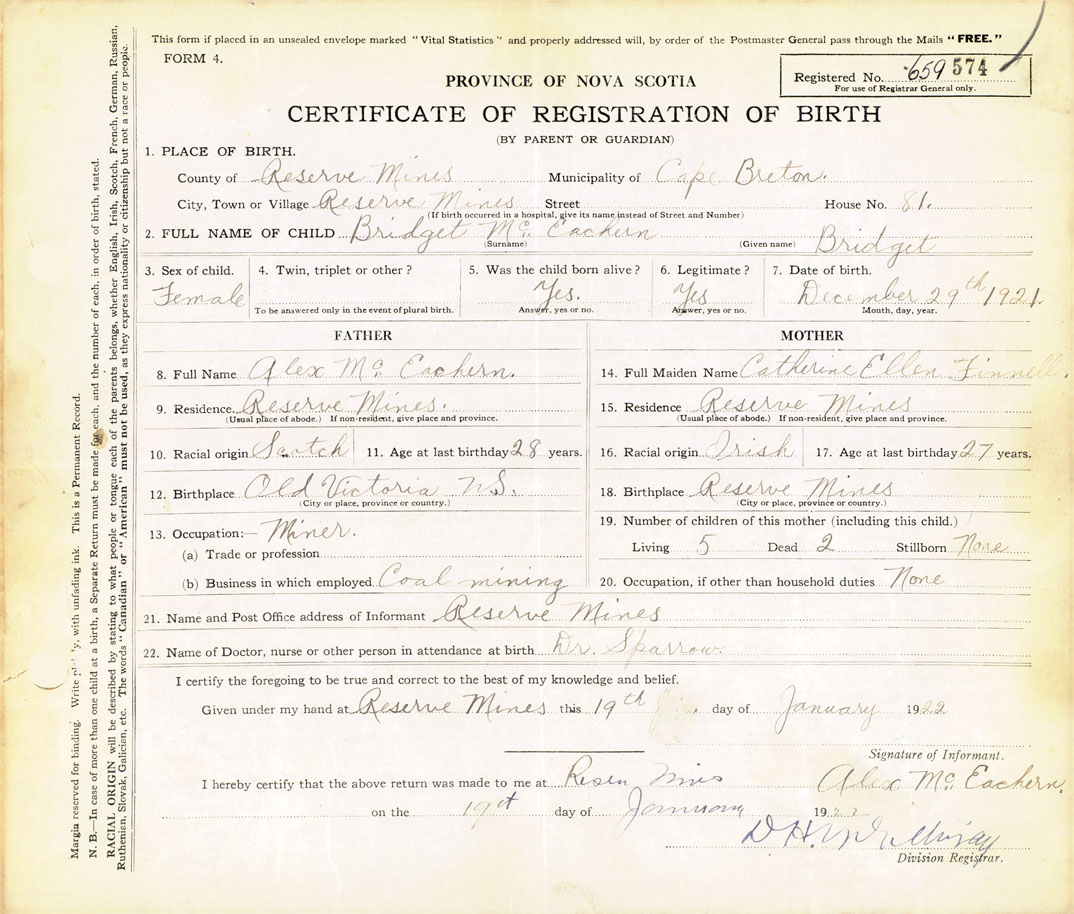 This form if placed in an unsealed envelope marked "Vital Statistics" and properly addressed will, by order of the Postmaster General pass through the Mails "FREE."
FORM 4.
Registered No. 659 574
For use of Registrar General only.
PROVINCE OF NOVA SCOTIA
CERTIFICATE OF REGISTRATION OF BIRTH
(BY PARENT OR GUARDIAN)
1. PLACE OF BIRTH.
County of Reserve Mines Municipality of Cape Breton.
City, Town or Village Reserve Mines Street House No. 81.
(If birth occurred in a hospital, give its name instead of Street and Number)
2. FULL NAME OF CHILD Bridget Mc Eachern Bridget
(Surname) (Given name)
3. Sex of child. 4. Twin, triplet or other? 5. Was the child born alive? 6. Legitimate? 7. Date of birth.
Female Yes. Yes December 29th 1921.
To be answered only in the event of plural birth. Answer, yes or no. Answer, yes or no. Month, day, year.
FATHER
8. Full Name Alex Mc Eachern.
9. Residence. Reserve Mines.
(Usual place of abode.) If non-resident, give place and province.
10. Racial origin Scotch 11. Age at last birthday 28 years.
12. Birthplace Old Victoria N.S.
(City or place, province or country.)
13. Occupation:— Miner.
(a) Trade or profession
(b) Business in which employed Coal mining
MOTHER
14. Full Maiden Name Catherine Ellen Finnell.
15. Residence Reserve Mines
(Usual place of abode.) If non-resident, give place and province.
16. Racial origin Irish 17. Age at last birthday 27 years.
18. Birthplace Reserve Mines
(City or place, province or country.)
19. Number of children of this mother (including this child.)
Living 5 Dead 2 Stillborn None
20. Occupation, if other than household duties None
21. Name and Post Office address of Informant Reserve Mines
22. Name of Doctor, nurse or other person in attendance at birth Dr. Sparrow.
I certify the foregoing to be true and correct to the best of my knowledge and belief.
Given under my hand at Reserve Mines this 19th day of January 1922
Signature of Informant.
Alex Mc Eachern.
I hereby certify that the above return was made to me at
on the 19th day of January 1922
D. H.
Division Registrar.
Margin reserved for binding. Write with unfading ink. This is a Permanent Record.
N. B.—In case of more than one child at a birth, a Separate Return must be made for each, and the number of each, in order of birth, stated.
RACIAL ORIGIN will be described by stating to what people or tongue each of the parents belongs, whether English, Irish, Scotch, French, German, Russian,
Ruthenian, Slovak, Galician, etc. The words "Canadian" or "American" must not be used, as they express nationality or citizenship but not a race or people.